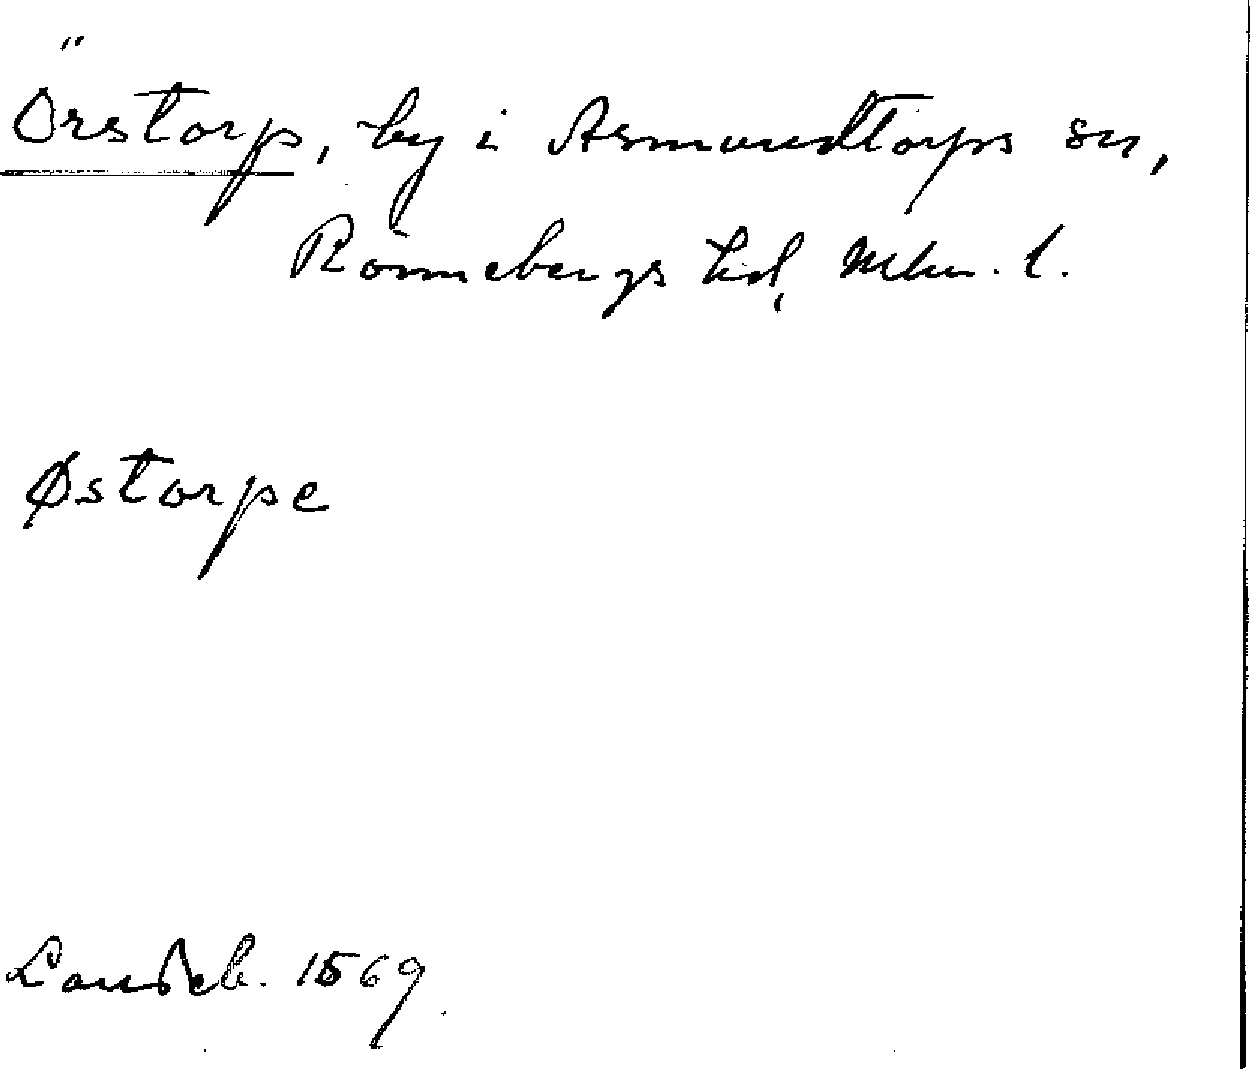 Örstorp, by i Asmundtorps sn,
Rönnebergs hd, Mlm. l.
Østorpe
Landeb. 1569